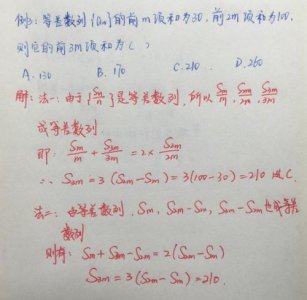 例3: 等差数列{an}的前m项和为30, 前2m项和为100,
则它的前3m项和为( )
A. 130 B. 170 C. 210 D. 260
解: 法一: 由于{Sn/n}是等差数列, 所以 Sm/m, S2m/2m, S3m/3m
成等差数列
即: Sm/m + S3m/3m = 2× S2m/2m
∴ S3m = 3(S2m-Sm) = 3(100-30) = 210 选C.
法二: 由等差数列, Sm, S2m-Sm, S3m-S2m也成等差
数列
则有: Sm+S3m-S2m = 2(S2m-Sm)
S3m = 3(S2m-Sm) = 210.